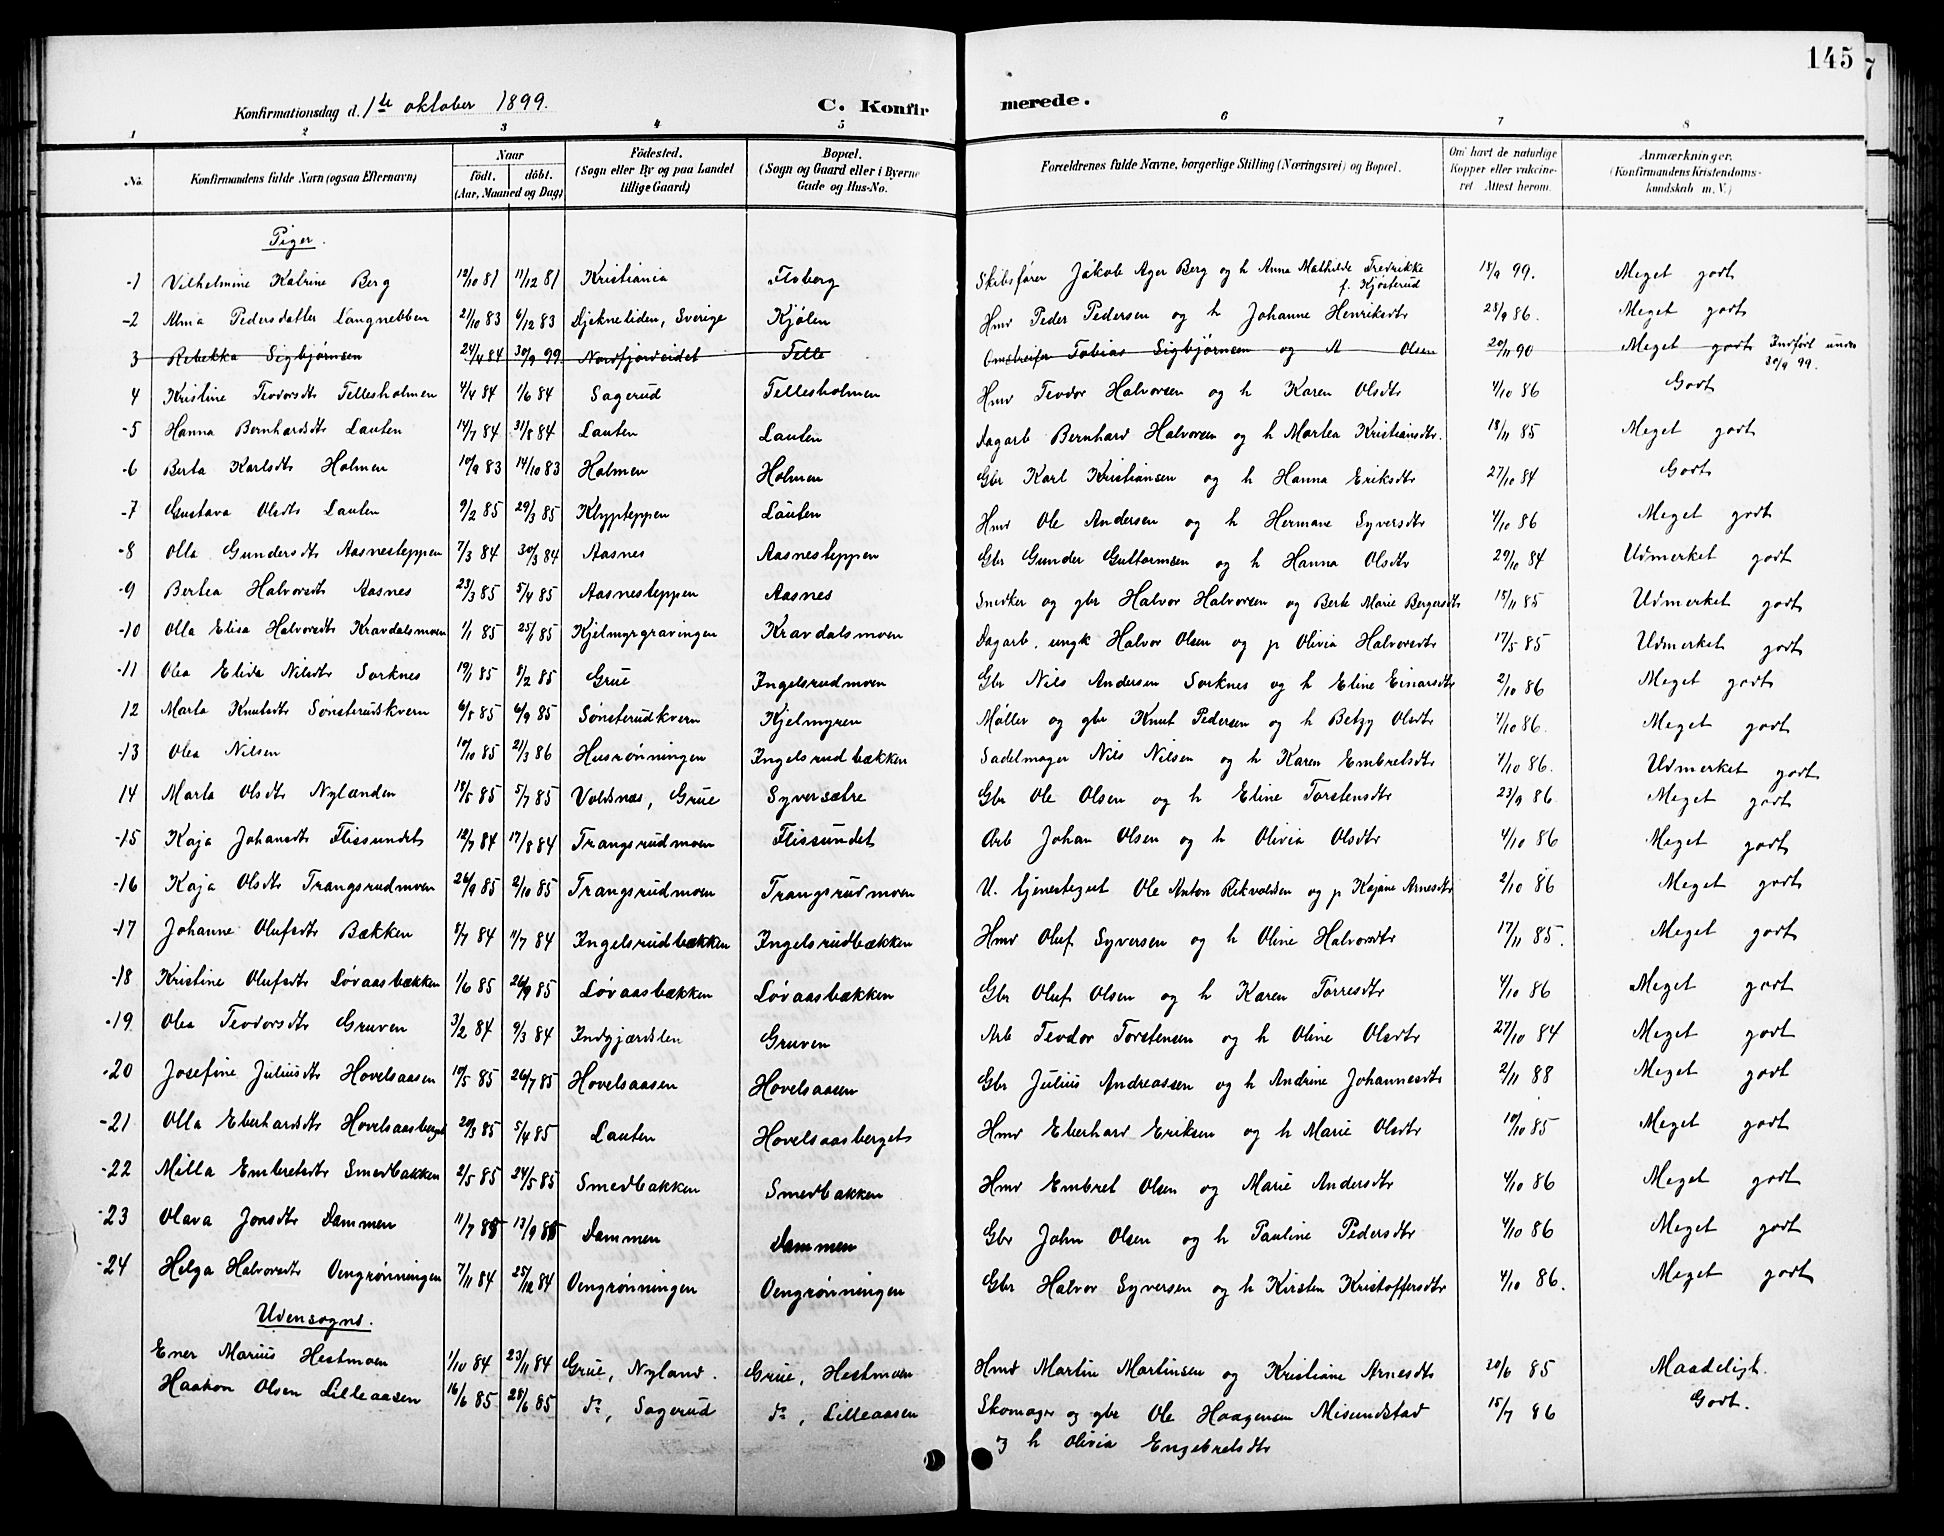 145
Konfirmationsdag d. 1ste oktober 1899.
C. Konfirmerede.
1 2 3 4 5 6 7 8
No. Konfirmandens fulde Navn (ogsaa Efternavn) Naar födt. döbt. (Aar, Maaned og Dag) Födested. (Sogn eller By og paa Landet tillige Gaard) Bopæl. (Sogn og Gaard eller i Byerne Gade og Hus-No. Forældrenes fulde Navne, borgerlige Stilling (Næringsvei) og Bopæl. Om havt de naturlige Kopper eller vakcineret Attest herom. Anmærkninger. (Konfirmandens Kristendomskundskab m. V.)
Piger.
-1 Vilhelmine Katrine Berg 12/10 81 11/12 81 Kristiania Floberg Skibsfører Jakob Ager Berg og h Anna Mathilde Fredrikke f. Kjösterud 18/9 99. Meget godt
-2 Alma Pedersdatter Langnebben 21/10 83 6/12 83 Djekneliden, Sverige Kjølen Hmd Peder Pedersen og h Johanne Henriksdtr 28/9 86. Meget godt
3 Rebekka Sigbjørnsen 24/4 84 30/9 99 Nordfjordeidet Telle Omstreifer Tobias Sigbjørnsen og A Olsen 20/11 90 Meget godt Indført under 30/9 99.
4 Kristine Teodorsdtr Tellesholmen 4/4 84 1/6 84 Sagerud Tellesholmen Hmd Teodor Halvorsen og h Karen Olsdtr 4/10 86 Godt
-5 Hanna Bernhardsdtr Lauten 14/7 84 31/8 84 Lauten Lauten Dagarb Bernhard Halvorsen og h Martea Kristiansdtr. 18/11 85 Meget godt
-6 Berta Karlsdtr Holmen 10/9 83 14/10 83 Holmen Holmen Gbr Karl Kristiansen og h Hanna Eriksdtr 27/10 84 Godt
-7 Gustava Olsdtr Lauten 9/2 85 29/3 85 Klypteppen Lauten Hmd Ole Andersen og h Hermane Syversdtr 4/10 86 Meget godt
-8 Olla Gundersdtr Aasnesteppen 7/3 84 30/3 84 Aasnes Aasnesteppen Gbr Gunder Guttormsen og h Hanna Olsdtr 29/10 84 Udmerket godt
-9 Bertea Halvorsdtr Aasnes 23/3 85 5/4 85 Aasnesteppen Aasnes Snedker og gbr Halvor Halvorsen og Berte Marie Bergersdtr 18/11 85 Udmerket godt
-10 Olla Elisa Halvorsdtr Kravdalsmoen 1/1 85 25/1 85 Kjelmyrgravingen Kravdalsmoen Dagarb. ungk Halvor Olsen og p Olivia Halvorsdtr 17/5 85 Udmerket godt
-11 Olea Elida Nilsdtr Sorknes 19/1 85 8/2 85 Grue Ingelsrudmoen Gbr Nils Andersen Sorknes og h Eline Einarsdtr 2/10 86 Meget godt
12 Marta Knutsdtr Sønsterudkvern 6/8 85 6/9 85 Sønsterudkvern Kjelmyren Møller og gbr Knut Pedersen og h Betzy Olsdtr 4/10 86. Meget godt
-13 Olea Nilsen 10/10 85 21/3 86 Husrønningen Ingelsrudbækken Sadelmager Nils Nilsen og h Karen Embretsdtr 4/10 86. Udmerket godt
14 Marta Olsdtr Nylænden 18/5 85 5/7 85 Voldsnæs, Grue Syversætre Gbr Ole Olsen og h Eline Torstensdtr 23/9 86 Meget godt
-15 Kaja Johansdtr Flissundet 12/7 84 17/8 84 Trangsrudmoen Flissundet Arb Johan Olsen og h Olivia Olsdtr 4/10 86 Meget godt
-16 Kaja Olsdtr Trangsrudmoen 26/9 85 2/10 85 Trangsrudmoen Trangsrudmoen U. tjenestegut Ole Anton Rikvoldsen og p Kajane Arnesdtr 2/10 86 Meget godt
-17 Johanne Olufsdtr Bækken 8/7 84 11/7 84 Ingelsrudbækken Ingelsrudbækken Hmd Oluf Syversen og h Oline Halvorsdtr 17/11 85. Meget godt
-18 Kristine Olufsdtr Løvaasbækken 1/6 85 26/9 85 Løvaasbækken Løvaasbækken Gbr Oluf Olsen og h Karen Torresdtr 4/10 86 Meget godt
-19 Olea Teodorsdtr Gruven 3/2 84 9/3 84 Indgjærdslen Gruven Arb Teodor Torstensen og h Oline Olsdtr 27/10 84 Meget godt
-20 Josefine Juliusdtr Hovelsaasen 10/5 85 26/7 85 Hovelsaasen Hovelsaasen Gbr Julius Andreassen og h Andrine Johannesdtr 2/11 88 Meget godt
-21 Olla Eberhardsdtr Hovelsaasberget 20/3 85 5/4 85 Lauten Hovelsaasberget Hmd Eberhard Eriksen og h Marie Olsdtr 10/10 85 Meget godt
-22 Milla Embretsdtr Smedbakken 2/5 85 24/5 85 Smedbakken Smedbakken Hmd Embret Olsen og Marie Andersdtr 4/10 86 Meget godt
-23 Olava Jonsdtr Dammen 11/7 85 13/9 85 Dammen Dammen Gbr John Olsen og h Pauline Pedersdtr 4/10 86 Meget godt
-24 Helga Halvorsdtr Oengrønningen 7/11 84 25/12 84 Oengrønningen Oengrønningen Gbr Halvor Syversen og h Kirsten Kristoffersdtr 4/10 86. Meget godt
Udensogns.
Ener Marius Hestmoen 1/10 84 23/11 84 Grue, Nyland. Grue, Hestmoen Hmd Martin Martinsen og Kristiane Arnesdtr 20/6 85 Maadeligt.
Haakon Olsen Lilleaasen 16/6 85 28/6 85 do, Sagerud do, Lilleaasen Skomager og gbr Ole Haagensen Misundstad 15/7 86 Godt.
og h Olivia Engebretsdtr